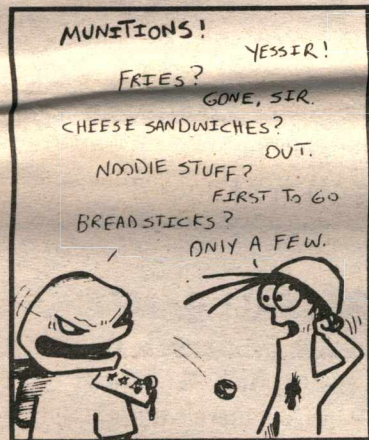 MUNITIONS!
YESSIR!
FRIES?
GONE, SIR.
CHEESE SANDWICHES?
OUT.
NOODIE STUFF?
FIRST TO GO
BREADSTICKS?
ONLY A FEW.